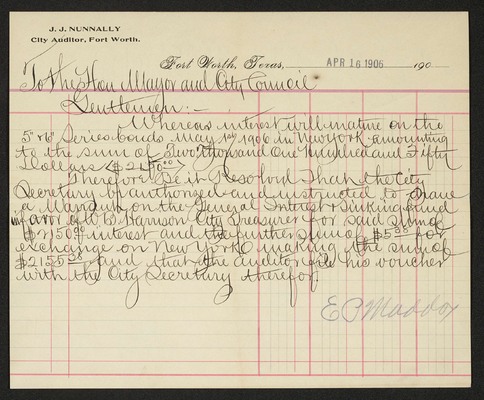 J. J. NUNNALLY
City Auditor, Fort Worth.
Fort Worth, Texas, APR 16 1906 190
To the Hon Mayor and City Council
Gentlemen:-
Whereas interest will mature on the
5th & 6th Series bonds May 1st 1906 in New York amounting
to the sum of Two thousand One Hundred and Fifty
Dollars $2150.00
Therefore Be it Resolved That the City
Secretary be authorized and instructed to draw
a Warrant on the General Interest & Sinking fund
in favor of W B Harrison City Treasurer for said sum of
$2150.00 interest and the further sum of $5.38 for
exchange on New York making the sum of
$2155.38 and that the Auditor file his voucher
with the City Secretary therefor
E P Maddox